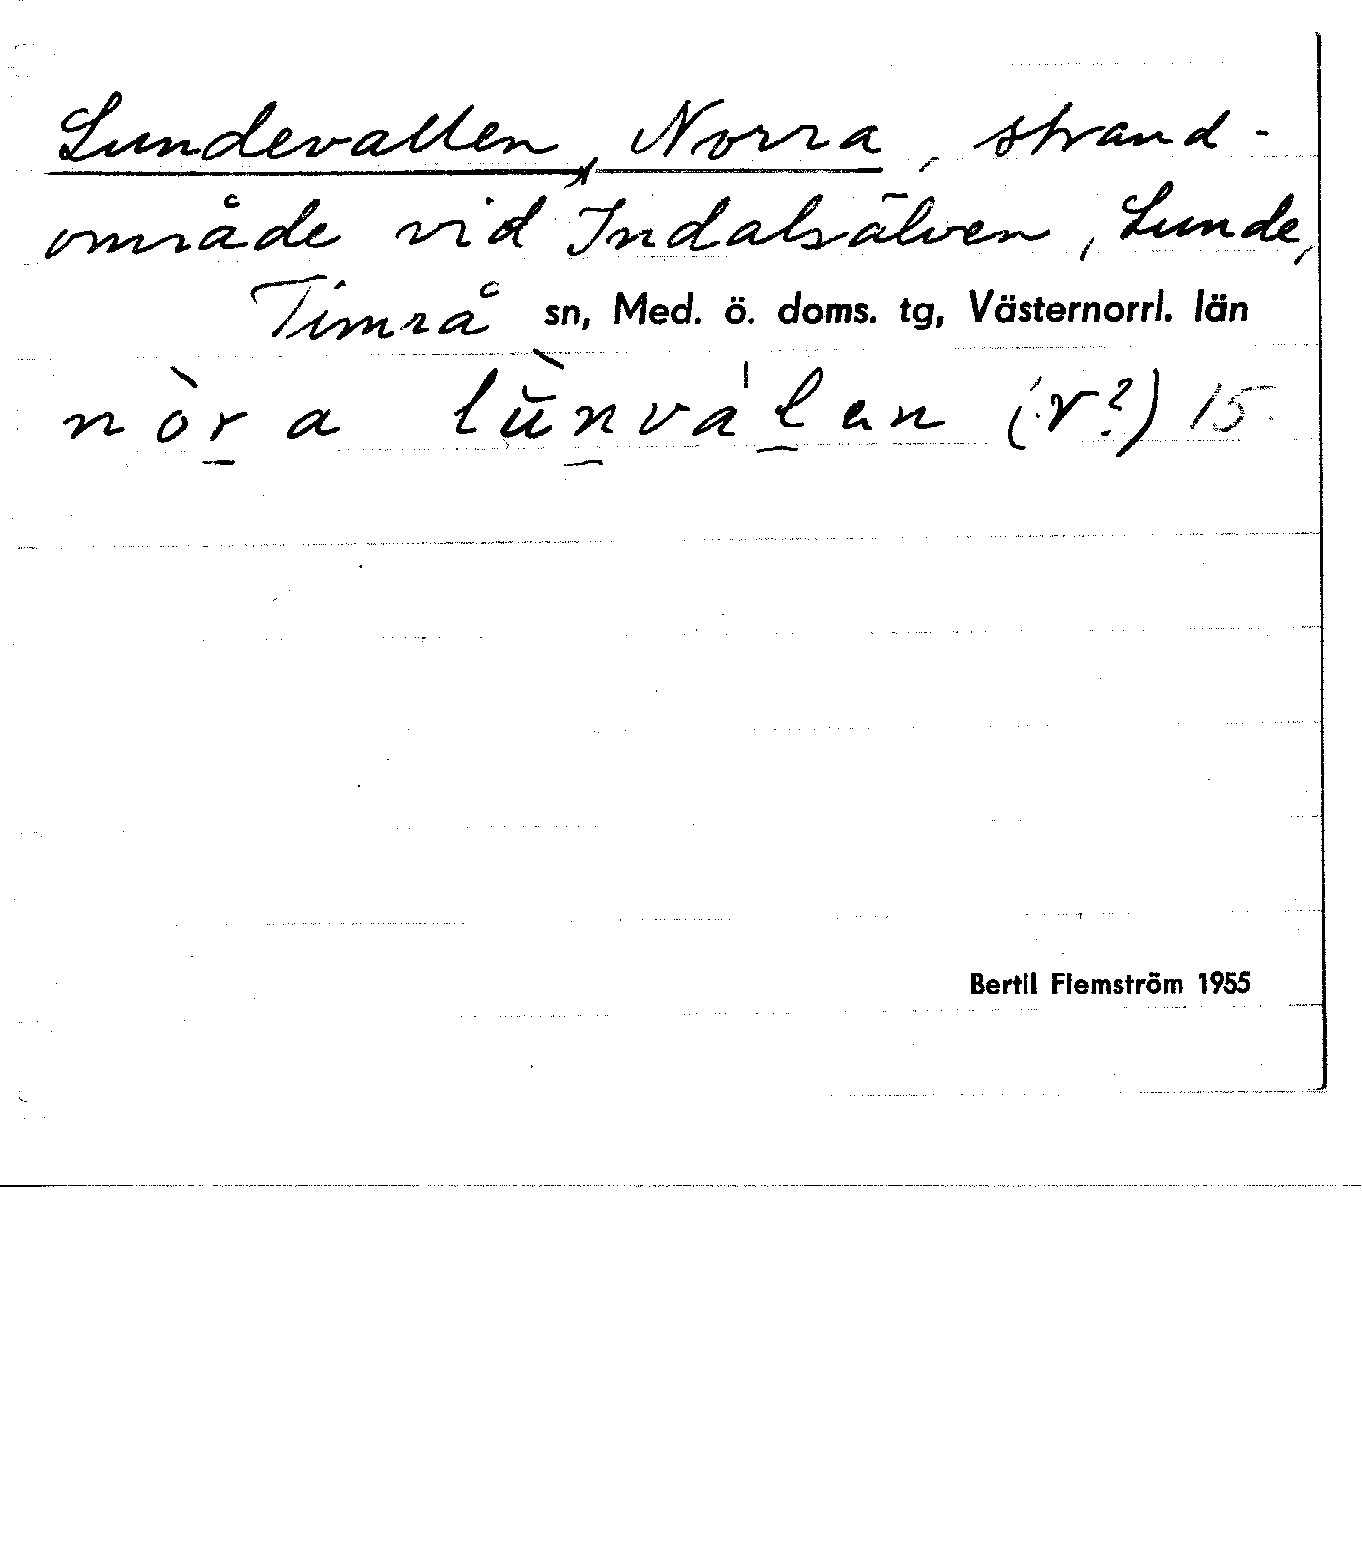 Lundevallen, Norra, strand-
område vid Indalsälven, Lunde,
Timrå sn, Med. ö. doms. tg, Västernorrl. län
nòr̲a lùn̲va'l̲en (r?) 15
Bertil Flemström 1955